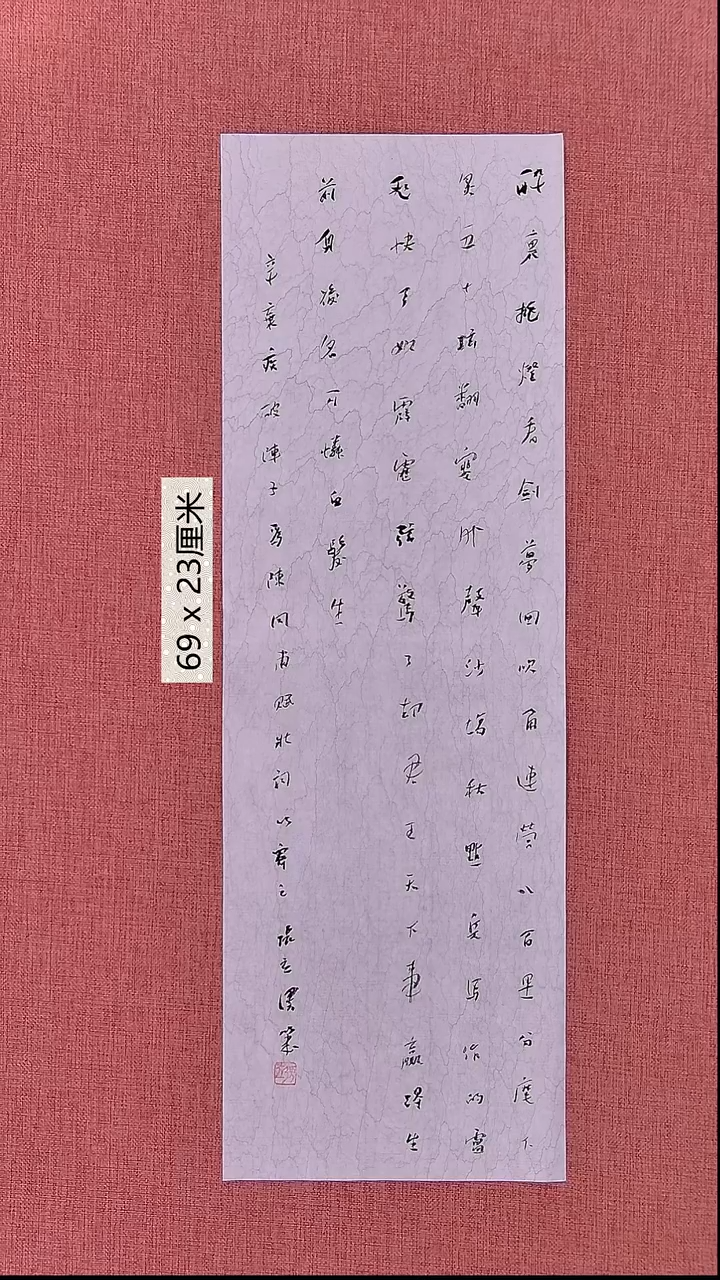 醉裏挑燈看劍夢回吹角連營八百里分麾下
炙五十弦翻塞外聲沙場秋點兵馬作的盧
飛快弓如霹靂弦驚了卻君王天下事贏得生
前身後名可憐白髮生
辛棄疾破陣子爲陳同甫賦壯詞以寄之
69 x 23厘米